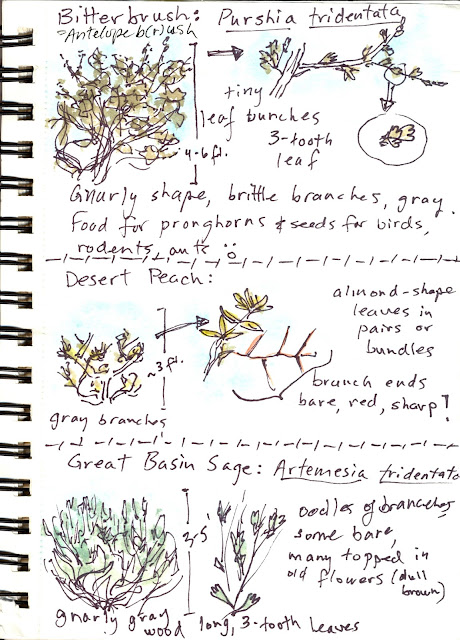 Bitterbrush: Purshia tridentata
=Antelope b(r)ush
tiny
leaf bunches
3-tooth
leaf
4-6 ft.
Gnarly shape, brittle branches, gray.
Food for pronghorns & seeds for birds,
rodents, ants
Desert Peach:
almond-shape
leaves in
pairs or
bundles
~3 ft.
branch ends
bare, red, sharp!
gray branches
Great Basin Sage: Artemesia tridentata
2-5'
oodles of branches,
some bare,
many topped in
old flowers (dull
brown)
gnarly gray
wood
long, 3-tooth leaves